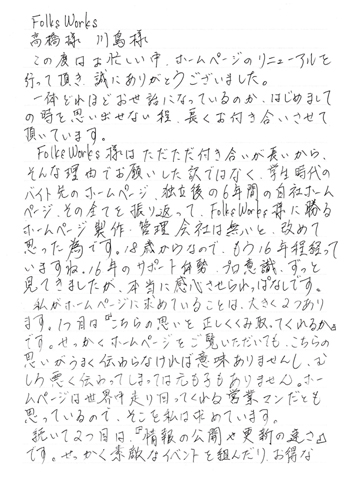 Folks Works
高橋様 川島様
この度はお忙しい中、ホームページのリニューアルを
行って頂き、誠にありがとうございました。
一体どれほどお世話になっているのか、はじめまして
の時を思い出せない程、長くお付き合いさせて
頂いています。
FolksWorks様はただただ付き合いが長いから、
そんな理由でお願いした訳ではなく、学生時代の
バイト先のホームページ、独立後の6年間の自社ホーム
ページ、その全てを振り返って、FolksWorks様に勝る
ホームページ製作・管理会社は無いと、改めて
思った為です。18歳からなので、もう16年程経って
いますね。16年のサポート体勢、プロ意識、ずっと
見てきましたが、本当に感心させられっぱなしです。
私がホームページに求めていることは、大きく2つあり
ます。1つ目は『こちらの思いを正しくくみ取ってくれるか』
です。せっかくホームページをご覧いただいても、こちらの
思いがうまく伝わらなければ意味ありませんし、む
しろ悪く伝わってしまっては元も子もありません。ホー
ムページは世界中走り回ってくれる営業マンだとも
思っているので、そこを私は求めています。
続いて2つ目は、『情報の公開や更新の速さ』
です。せっかく素敵なイベントを組んだり、お得な